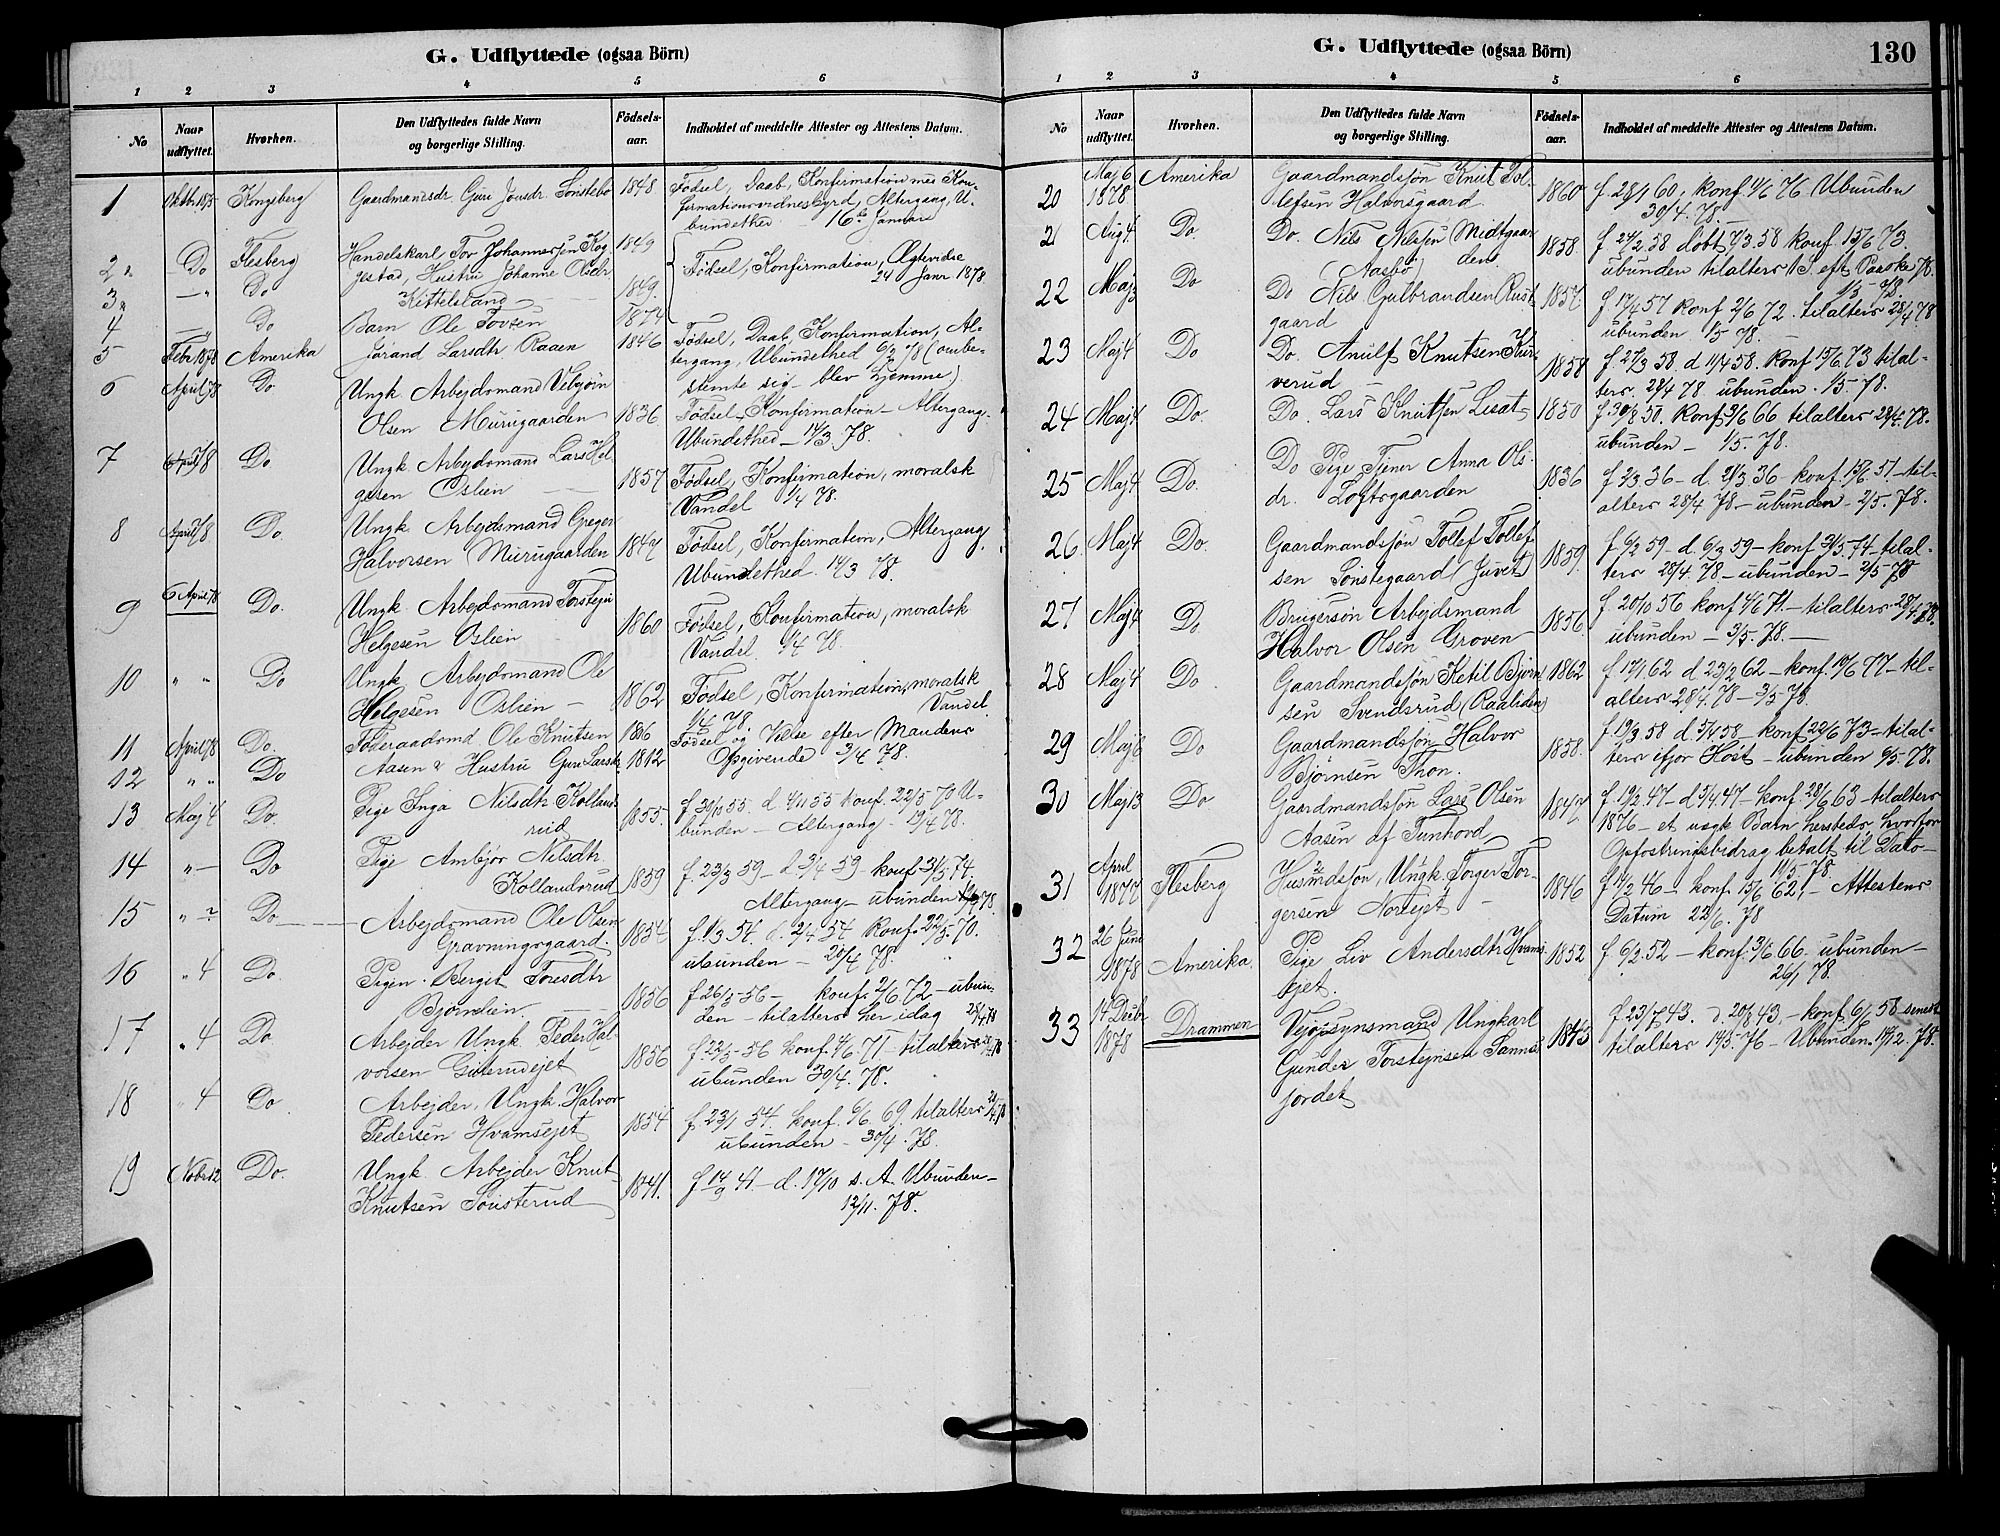 G. Udflyttede (ogsaa Börn)
1 2 3 4 5 6
No
Naar udflyttet.
Hvorhen.
Den Udflyttedes fulde Navn og borgerlige Stilling.
Födsels-aar.
Indholdet af meddelte Attester og Attestens Datum.
1 Kongsberg Gaardmandsdr. Guri Jonsdr. Sönstebö 1848 Födsel, Daab, Konfirmation med Kon-
firmationsvidnesbyrd, Altergang, U-
bundethed – 16de Januar
2 Do Flesberg Handelskarl Tov Johannessen Kog 1849
3 – " Do gestad, Hustru Johanne Olsdr 1849 Födsel, Konfirmation, Ægtevidse
Kittelsland 24 Janr 1878
4 – " Do Barn Ole Tovsen 1874
5 Febr 1878 Amerika Jörand Larsdtr Raaen 1846 Födsel, Daab, Konfirmation, Al-
tergang, Ubundethed 6/2 78 (ombe-
stemte sig – blev hjemme)
6 April 78 Do Ungk. Arbejdsmand Vebjörn
Olsen Murugaarden 1836 Födsel, Konfirmation – Altergang
Ubundethed – 14/3. 78.
7 6 April 78 Do Ungk. Arbejdsmand Lars Hel
gesen Oslien 1857 Födsel, Konfirmation, moralsk
Vandel 1/4 78.
8 April 78 Do. Ungk. Arbejdsmand Greger
Halvorsen Murugaarden 1847 Födsel, Konfirmation, Altergang,
Ubundethed 14/3 78.
9 6 April 78 Do. Ungk. Arbejdsmand Torstejn
Helgesen Oslien 1860 Födsel, Konfirmation, moralsk
Vandel 1/4 78.
10 " " Do Ungk. Arbejdsmand Ole
Helgesen Oslien – 1862 Födsel, Konfirmation, moralsk
1/4 78 Vandel
11 April 78 Do. Föderaadsmd. Ole Knutsen Födsel og Vielse efter Mandens
12 " " Do Aasen & Hustru Guri Larsdr 1812 Opgivende 3/4 78.
13 Maj 4 Do. Pige Inga Nilsdtr Kolland
rud 1855. konf. 22/5 70 U-
bunden – Altergang – 19/4 78.
14 " – Do Pige Ambjör Nilsdtr.
Kollandsrud 1859 f. 23/3 59 – d. 3/4 59 – konf 31/5 74.
Altergang – ubunden
15 " Do Arbejdsmand Ole Olsen
Gravningsgaard. 1854 f. 1/3 54. d. 2/4 54 Konf. 22/5. 70.
ubunden – 20/4 78.
16 " 4 Do. Pigen Berget Toresdtr
Björnlien. 1856 f 26/5 – 56 – konf. 2/6 72 – ubun-
den – tilalters her idag 28/4 78
17 " 4 Do. Arbejder Ungk. Peder Hal-
vorsen Guterudejet 1856 f. 23/5 – 56 konf. 4/6 – 71 – tilalters 28/4 78
ubunden 30/4. 78.
18 " 4 Do Arbejder, Ungk. Halvor
Pedersen Hvamsejet 1854 f. 23/1 54. konf. 6/6. 69. tilalters 28/4 78
ubunden – 30/4. 78.
19 Nobr 12 Do. Ungk. Arbejder Knut
Knutsen Sönsterud 1841. f 14/9 41 – d. 17/10 s. A. Ubunden –
12/11. 78.
G. Udflyttede (ogsaa Börn)
130
1 2 3 4 5 6
No
Naar udflyttet.
Hvorhen.
Den Udflyttedes fulde Navn og borgerlige Stilling.
Födsels-aar.
Indholdet af meddelte Attester og Attestens Datum.
20 Maj 6 1878 Amerika Gaardmandssön Knut Tol-
lefsen Halvorsgaard. 1860 f. 28/1 60, konf. 4/6 76 Ubunden
30/4. 78.
21 Maj 4 Do Do. Nils Nilssen Midtgaar
den (Aasbö) 1858 f 24/2. 58 döbt 7/3. 58 konf. 15/6 73.
ubunden tilalters 1 S. eft Paaske 78.
1/5 – 78.
22 Maj 3 Do Do Nils Gulbrandsen Rust
gaard 1857. f. 17/4 57 Konf 2/6 72. tilalters 28/4 78
ubunden 1/5 78.
23 Maj 4 Do Do. Anulf Knutsen Kur
verud – 1858 f. 27/3 58 d 11/4 58. konf. 15/6 73 tilal-
ters. 28/4 78 ubunden. 1/5 – 78.
24 Maj 4 Do. Do. Lars Knutsen Lisat 1850 f. 30/8. 50. Konf. 3/6 66 tilalters 28/4. 78.
ubunden – 1/5 – 78.
25 Maj 4 Do. Do Pige Tjener Anna Ols
dr. Loftsgaarden 1836 f 2/3 36 – d. 21/3 36 – konf. 15/6. 51 – til-
alters 28/4 78 – ubunden – 2/5. 78.
26. Maj 4 Do. Gaardmandssön Tollef Tollef
sen Sönstegaard (Juvet) 1859. f 6/2 59 – d. 6/3 59 – konf 31/5. 74 – tilal-
ters 28/4. 78 – ubunden – 2/5 78
27 Maj 4 Do Brugersön Arbejdsmand
Halvor Olsen Groven 1856. f. 20/10 56 konf 4/6 71 – tilalters 28/4 78.
ubunden – 3/5. 78. –
28 Maj 4 Do Gaardmandssön Ketil Björn
sen Svendsrud (Raaliden) 1862 f 17/1 62 d 23/2 62 – konf. 10/6 77 – til-
alters 28/4. 78 – 3/5 78.
29 Maj 6 Do Gaardmandssön Halvor
Björnsen Thon. 1858. f. 19/3 58 d. 5/4 58 – konf 22/6 73 – tilal-
ters ifjor Höst – ubunden 6/5. 78.
30 Maj 13 Do Gaardmandssön Lars Olsen
Aasen af Tunhovd 1847 f. 19/2. 47 – d 5/4. 47 – konf. 28/6 63 – tilalters
1876 – et uægt Barn hersteds hvorfor
Opfostringsbidrag betalt til Dato –
11/5. 78.
31 April 1877 Flesberg Husmdssön, Ungk. Torger Tor-
gersen Norejet – 1846 f 11/2 46 – konf. 15/6 62, – Attestens
Datum 22/6. 78
32 26 Juni 1878 Amerika. Pige Liv Andersdtr Hvams
ejet. 1852 f 6/2. 52 – konf. 3/6 66. ubunden –
26/1 78.
33 14 Decbr 1878 Drammen Vejopsynsmand Ungkarl
Gunder Torstejnsen Sannes
jordet 1843 f. 23/7 43. d. 20/8 43, – konf. 6/6 58 senest
tilalters 14/5. 76 – Ubunden. 14/12. 78.